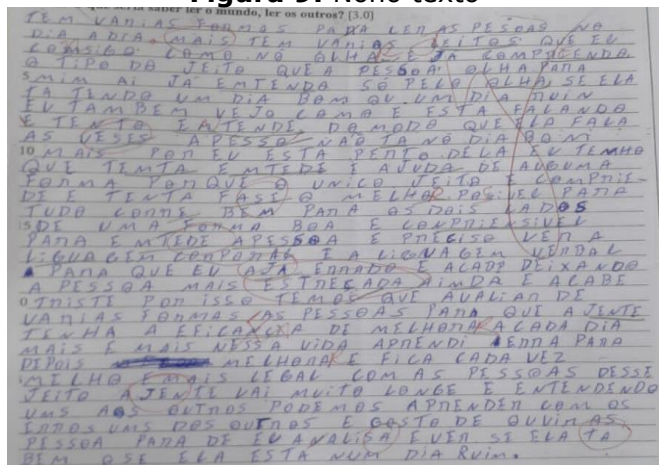 Figura 9: Nono texto
que seria saber ler o mundo, ler os outros? [3.0]
TEM VARIAS FORMAS PARA LER AS PESOAS NO
DIA ADIA. MAIS TEM VARIAS JEITOS QUE EU
COMSIGO COMO NO OLHA E JA COMPRIENDA
O TIPO DO JEITO QUE A PESSOA OLHA PARA
5 MIM AI JA EMTENDO SO PELO OLHA, SE ELA
TA TENDO UM DIA BOM OU UM DIA RUIN
EU TAMBEM VEJO COMO E ESTA AFALANDO
E TENTO EMTENDE, DO MODO QUE ELA FALA
AS VESES APESSO NÃO TA NO DIA BOM
10 MAIS POR EU ESTA PERTO DELA EU TENHO
QUE TEMTA EMTEDE E AJUDA DE ALGUMA
FORMA PORQUE O UNICO JEITO E COMPRIE-
DE E TENTA FASE O MELHOR POSIVEL PARA
TUDO CORRE BEM PARA OS DOIS LADOS
15 DE UMA FORMA BOA E CONPRIENSIVEL
PARA EMTEDE APESSOA E PRECISO VER A
LIGUAGEM CORPORAL E A LIGUAGEM VERBAL
PARA QUE EU AJA ERRADO E ACABO DEIXANDO
A PESSOA MAIS ESTRECADA AIMDA E ACABE
0 TRISTE POR ISSO TEMOS QUE AVALIAR DE
VARIAS FORMAS AS PESSOAS PARA QUE A JENTE
TENHA A EFICANCIA DE MELHORA A CADA DIA
MAIS E MAIS NESSA VIDA APRENDI ERRA PARA
DEPOIS MELHORA E FICA CADA VEZ
MELHO E MAIS LEGAL COM AS PESSOAS DESSE
JEITO A JENTE VAI MUITO LONGE E ENTENDENDO
UMS AOS OUTROS PODEMOS APRENDER COM OS
ERROS UMS DOS OUTROS E GOSTO DE OUVIR AS
PESSOA PARA DE EU ANALISA E VER SE ELA TA
BEM O SE ELA ESTA NUM DIA RUIM.